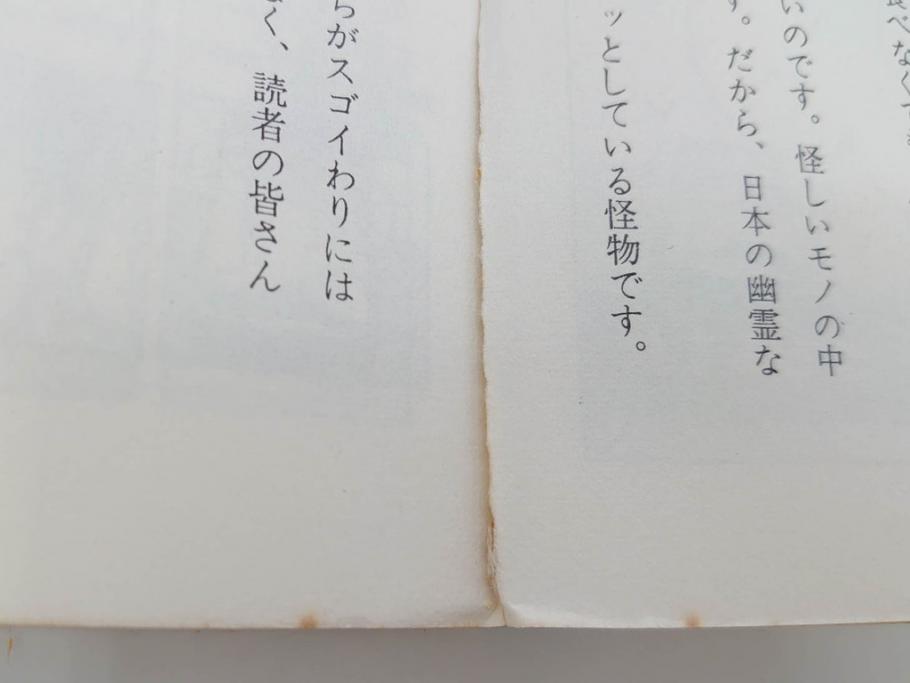 べなくて
いのです。怪しいモノの中
す。だから、日本の幽霊な
ッとしている怪物です。
らがスゴイわりには
く、読者の皆さん